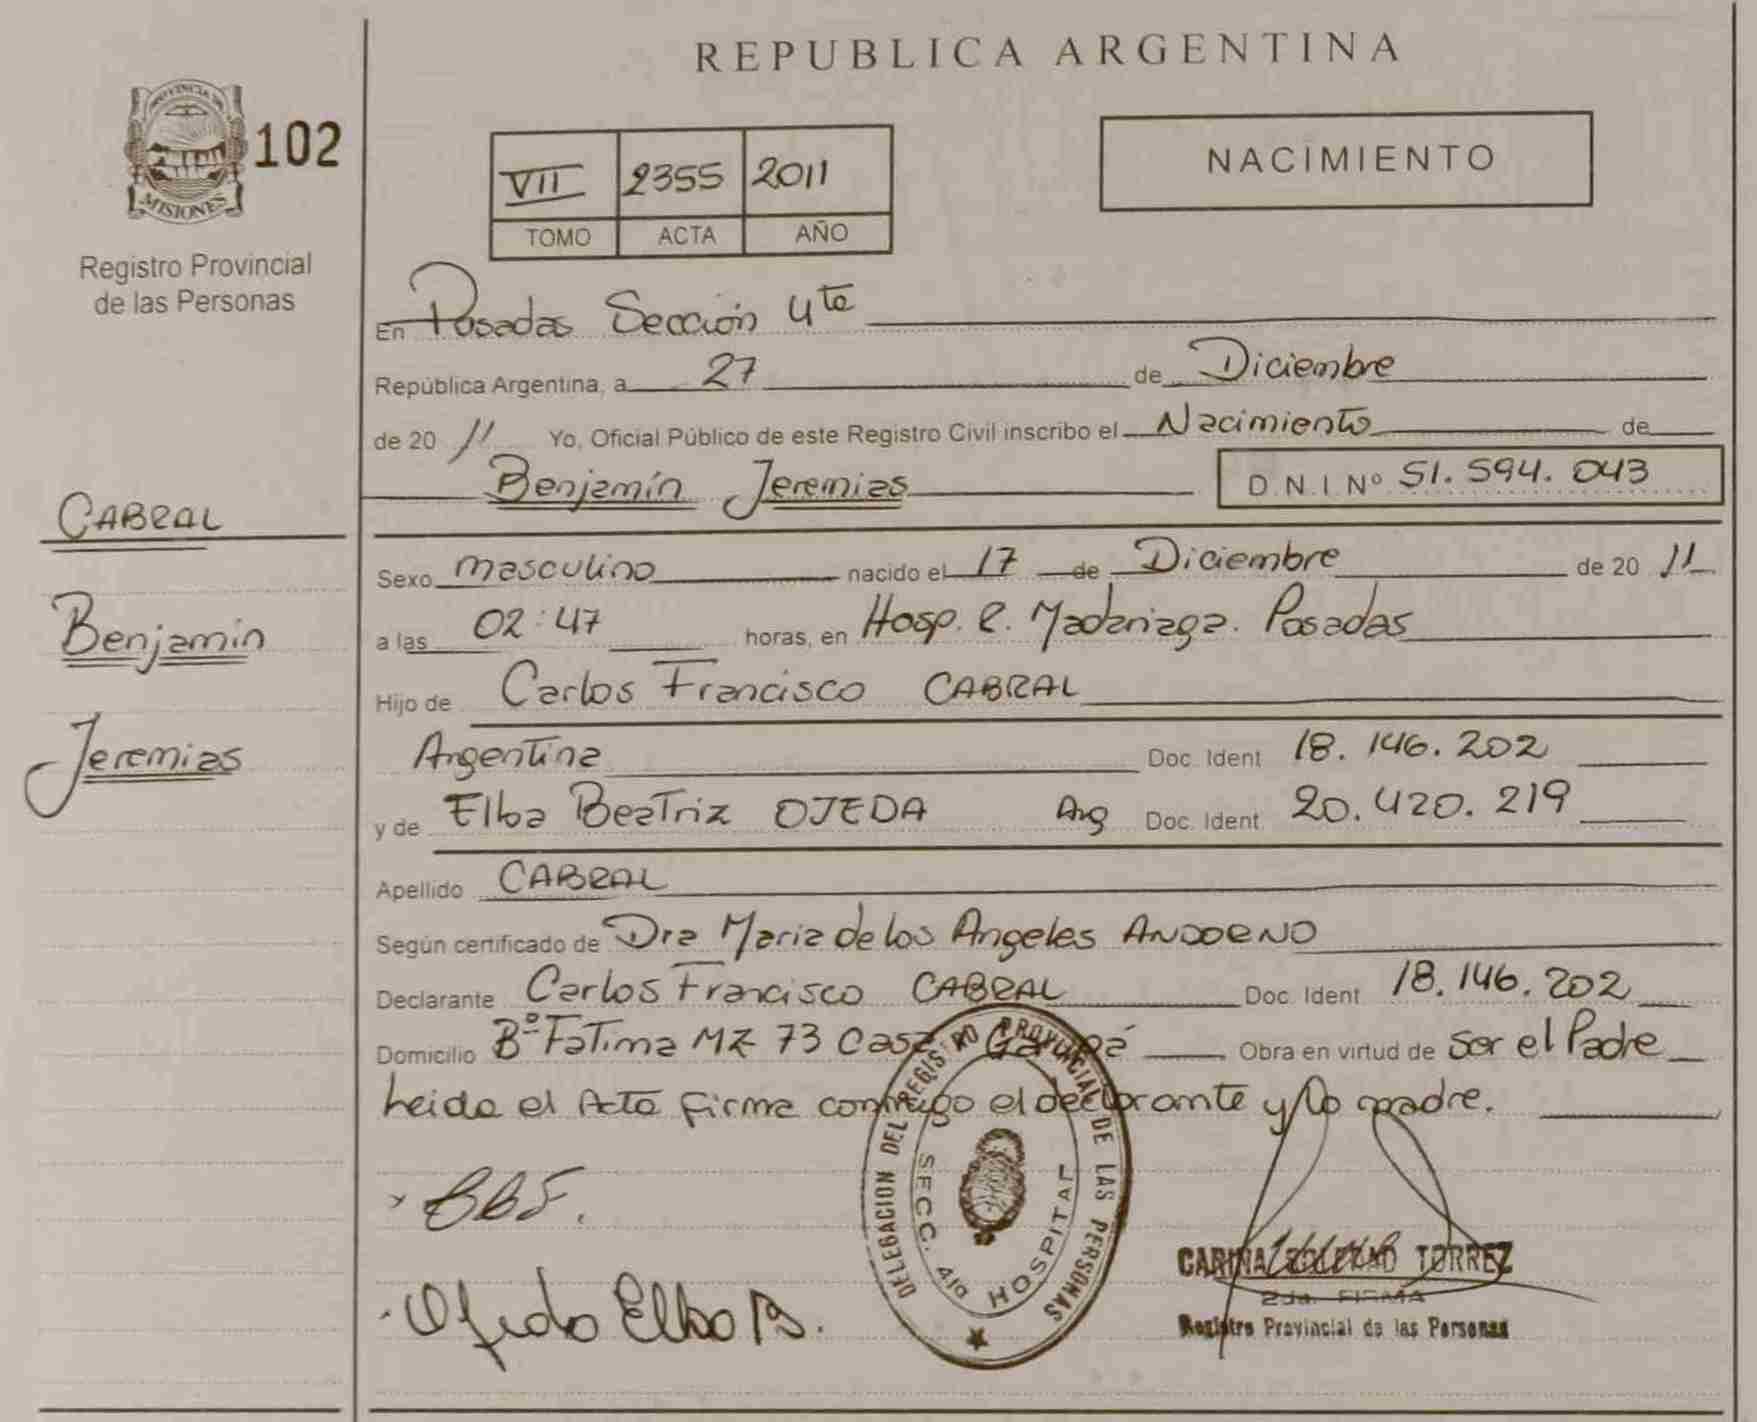 REPUBLICA ARGENTINA
PROVINCIA DE
MISIONES
102
Registro Provincial
de las Personas
VII 2355 2011
TOMO ACTA AÑO
NACIMIENTO
En Posadas Sección 4ta
República Argentina, a 27 de Diciembre
de 20 11 Yo, Oficial Público de este Registro Civil inscribo el Nacimiento de
Benjamín Jeremias D.N.I. Nº 51.594.043
CABRAL
Benjamín
Jeremias
Sexo masculino nacido el 17 de Diciembre de 20 11
a las 02:47 horas, en Hosp. R. Madariaga. Posadas
Hijo de Carlos Francisco CABRAL
Argentina Doc. Ident 18.146.202
y de Elba Beatriz OJEDA Arg Doc. Ident. 20.420.219
Apellido CABRAL
Según certificado de Dra Maria de los Angeles ANDORNO
Declarante Carlos Francisco CABRAL Doc. Ident 18.146.202
Domicilio Bº Fatima MZ 73 Casa Garupá Obra en virtud de ser el Padre
Leida el Acta firma conmigo el declarante y la madre.
DELEGACION DEL REGISTRO PROVINCIAL DE LAS PERSONAS
SECC. 4ta HOSPITAL
Elba B.
CARINA SOLEDAD TORREZ
2da. FIRMA
Registro Provincial de las Personas